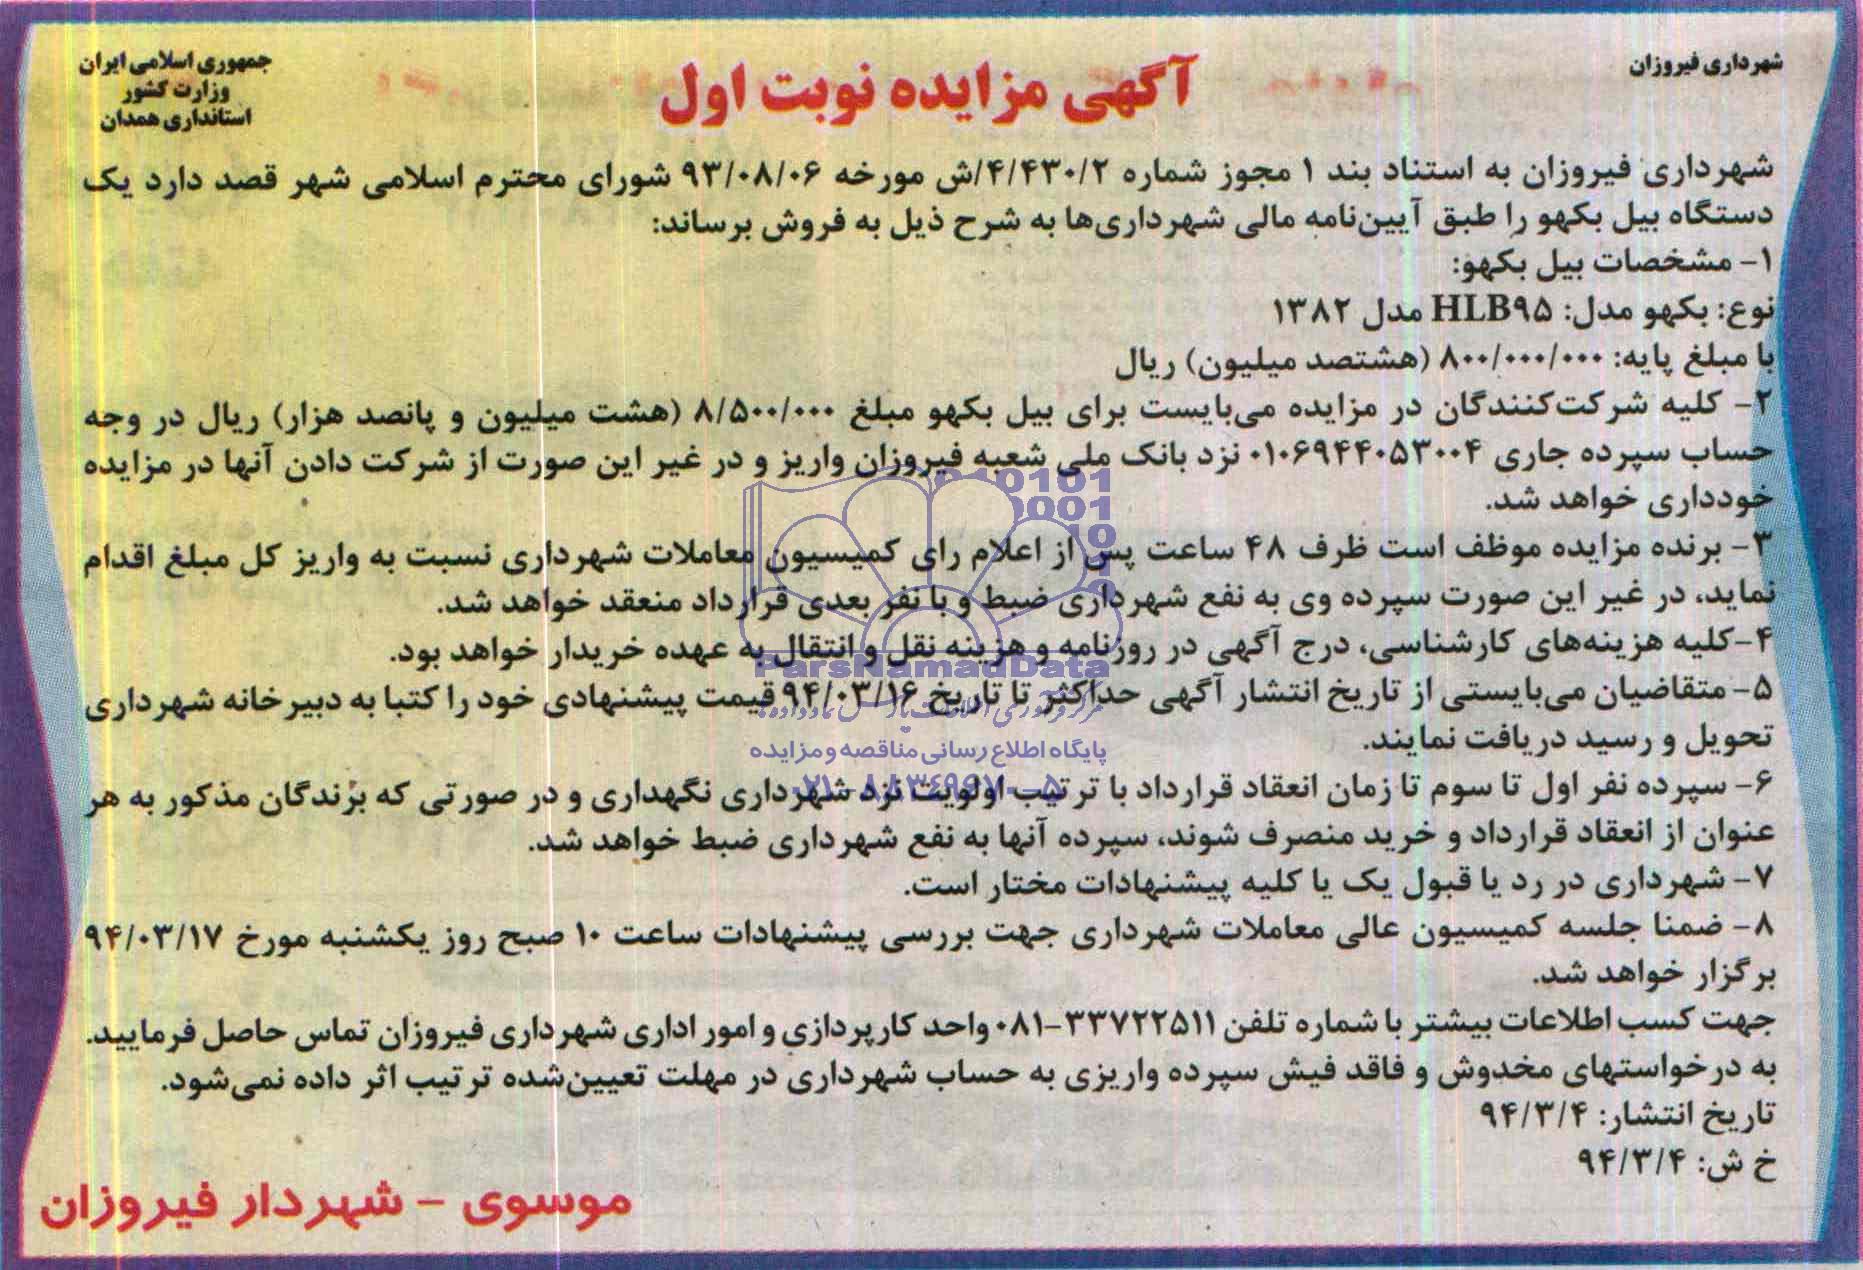 شهرداری فیروزان
جمهوری اسلامی ایران
وزارت کشور
استانداری همدان
آگهی مزایده نوبت اول
شهرداری فیروزان به استناد بند ۱ مجوز شماره ۴/۴۳۰/۲/ش مورخه ۹۳/۰۸/۰۶ شورای محترم اسلامی شهر قصد دارد یک
دستگاه بیل بکهو را طبق آیین‌نامه مالی شهرداری‌ها به شرح ذیل به فروش برساند:
۱- مشخصات بیل بکهو:
نوع: بکهو مدل: HLB۹۵ مدل ۱۳۸۲
با مبلغ پایه: ۸۰۰/۰۰۰/۰۰۰ (هشتصد میلیون) ریال
۲- کلیه شرکت‌کنندگان در مزایده می‌بایست برای بیل بکهو مبلغ ۸/۵۰۰/۰۰۰ (هشت میلیون و پانصد هزار) ریال در وجه
حساب سپرده جاری ۰۱۰۶۹۴۴۰۵۳۰۰۴ نزد بانک ملی شعبه فیروزان واریز و در غیر این صورت از شرکت دادن آنها در مزایده
خودداری خواهد شد.
۳- برنده مزایده موظف است ظرف ۴۸ ساعت پس از اعلام رای کمیسیون معاملات شهرداری نسبت به واریز کل مبلغ اقدام
نماید، در غیر این صورت سپرده وی به نفع شهرداری ضبط و با نفر بعدی قرارداد منعقد خواهد شد.
۴-کلیه هزینه‌های کارشناسی، درج آگهی در روزنامه و هزینه نقل و انتقال به عهده خریدار خواهد بود.
۵- متقاضیان می‌بایستی از تاریخ انتشار آگهی حداکثر تا تاریخ ۹۴/۰۳/۱۶ قیمت پیشنهادی خود را کتبا به دبیرخانه شهرداری
تحویل و رسید دریافت نمایند.
۶- سپرده نفر اول تا سوم تا زمان انعقاد قرارداد با ترتیب اولویت نزد شهرداری نگهداری و در صورتی که برندگان مذکور به هر
عنوان از انعقاد قرارداد و خرید منصرف شوند، سپرده آنها به نفع شهرداری ضبط خواهد شد.
۷- شهرداری در رد یا قبول یک یا کلیه پیشنهادات مختار است.
۸- ضمنا جلسه کمیسیون عالی معاملات شهرداری جهت بررسی پیشنهادات ساعت ۱۰ صبح روز یکشنبه مورخ ۹۴/۰۳/۱۷
برگزار خواهد شد.
جهت کسب اطلاعات بیشتر با شماره تلفن ۳۳۷۲۲۵۱۱-۰۸۱ واحد کارپردازی و امور اداری شهرداری فیروزان تماس حاصل فرمایید.
به درخواستهای مخدوش و فاقد فیش سپرده واریزی به حساب شهرداری در مهلت تعیین‌شده ترتیب اثر داده نمی‌شود.
تاریخ انتشار: ۹۴/۳/۴
خ ش: ۹۴/۳/۴
موسوی - شهردار فیروزان
ParsNamadData
پایگاه اطلاع رسانی مناقصه و مزایده
۰۲۱-۸۸۳۴۹۶۷۰-۵